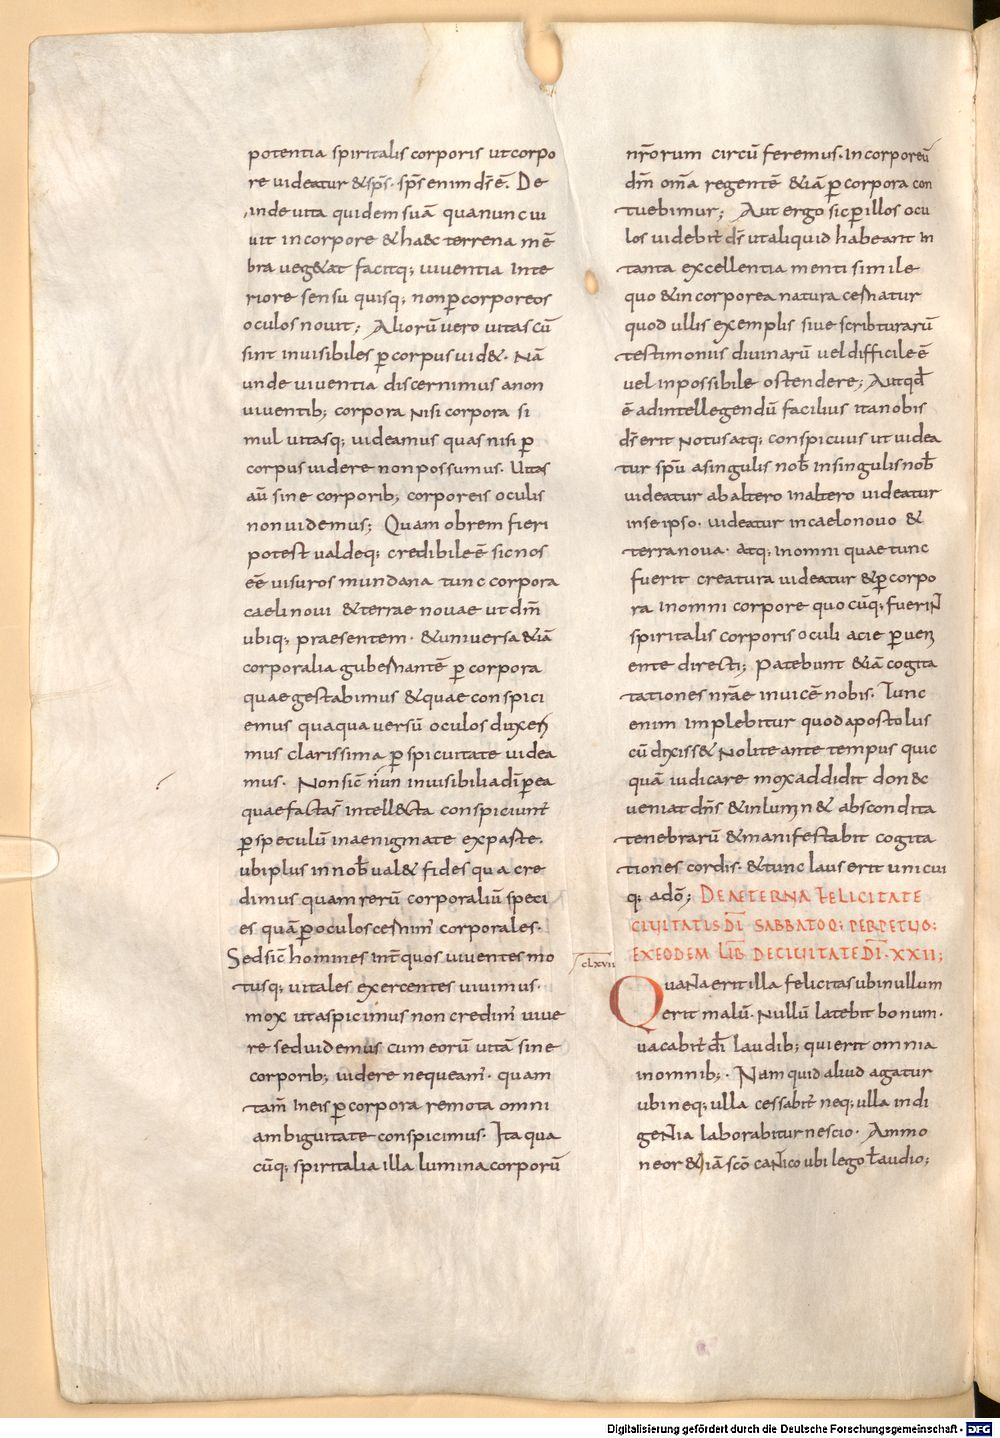 potentia spiritalis corporis utcorpo
re uideatur &sp̄s. sp̄s enim d̄s ē. De
inde uita quidem suā qua nunc ui
uit incorpore & haec terrena mē
bra ueg&at facitq; uiuentia inte
riore sensu quisq; non ꝑcorporeos
oculos nouit; Aliorū uero uitas cū
sint inuisibiles ꝑ corpus uid&. Nā
unde uiuentia discernimus anon
uiuentib; corpora nisi corpora si
mul uitasq; uideamus quas nisi ꝑ
corpus uidere non possumus. Uitas
aū sine corporib; corporeis oculis
non uidemus; Quam obrem fieri
potest ualdeq; credibile ē sic nos
eē uisuros mundana tunc corpora
caeli noui & terrae nouae ut dm̄
ubiq; praesentem. & uniuersa &iā
corporalia gubernantē ꝑ corpora
quae gestabimus & quae conspici
emus quaqua uersū oculos duxeri
mus clarissima ꝑspicuitate uidea
mus. Non sic̄ nun̄ inuisibilia di̅ ꝑ ea
quae facta s̄ intell&cta conspiciunt̄
ꝑ speculū inaenigmate exparte.
ubi plus in nob̄ ual& fides qua cre
dimus quam rerū corporaliū speci
es quā ꝑ oculos cernim̄ corporales.
Sed sic̄ homines int̄ quos uiuentes mo
tusq; uitales exercentes uiuimus.
mox ut aspicimus non credim̄ uiue
re sed uidemus cum eorū uitā sine
corporib; uidere nequeam̄. quam
tam̄ in eis ꝑ corpora remota omni
ambiguitate conspicimus. Ita qua
cūq; spiritalia illa lumina corporū
nr̄orum circū feremus. Incorporeū
dm̄ om̄a regentē &iā ꝑ corpora con
tuebimur; Aut ergo sic ꝑ illos ocu
los uidebit̄ d̄s ut aliquid habeant in
tanta excellentia menti simile
quo & incorporea natura cernatur
quod ullis exemplis siue scribturarū
testimoniis diuinarū uel difficile ē
uel inpossibile ostendere; Aut qd̄
ē ad intellegendū facilius ita nobis
d̄s erit notus atq; conspicuus ut uidea
tur spū a singulis nob̄ in singulis nob̄
uideatur ab altero in altero uideatur
in se ipso. uideatur in caelo nouo &
terra noua. atq; in omni quae tunc
fuerit creatura uideatur & ꝑ corpo
ra in omni corpore quo cūq; fuerint
spiritalis corporis oculi acie ꝑueni
ente directi; Patebunt &iā cogita
tationes nr̄ae inuicē nobis. Tunc
enim implebitur quod apostolus
cū dixiss& Nolite ante tempus quic
quā iudicare mox addidit donec
ueniat dn̄s & inlumin& abscondita
tenebrarū & manifestabit cogita
tiones cordis. & tunc laus erit unicui
q; a dō; DE AETERNA FELICITATE
CIUITATIS DI̅ SABBATOQ; PERPETUO:
EX EODEM LIB̄ DE CIUITATE DI̅. XXII;
clxvii
Quanta erit illa felicitas ubi nullum
erit malū. Nullū latebit bonum.
uacabit̄ di̅ laudib; qui erit omnia
in omnib;. Nam quid aliud agatur
ubi neq; ulla cessabit̄ neq; ulla indi
gentia laborabitur nescio. Ammo
neor &iā sc̄o cantico ubi lego t̄ audio;
Digitalisierung gefördert durch die Deutsche Forschungsgemeinschaft - DFG